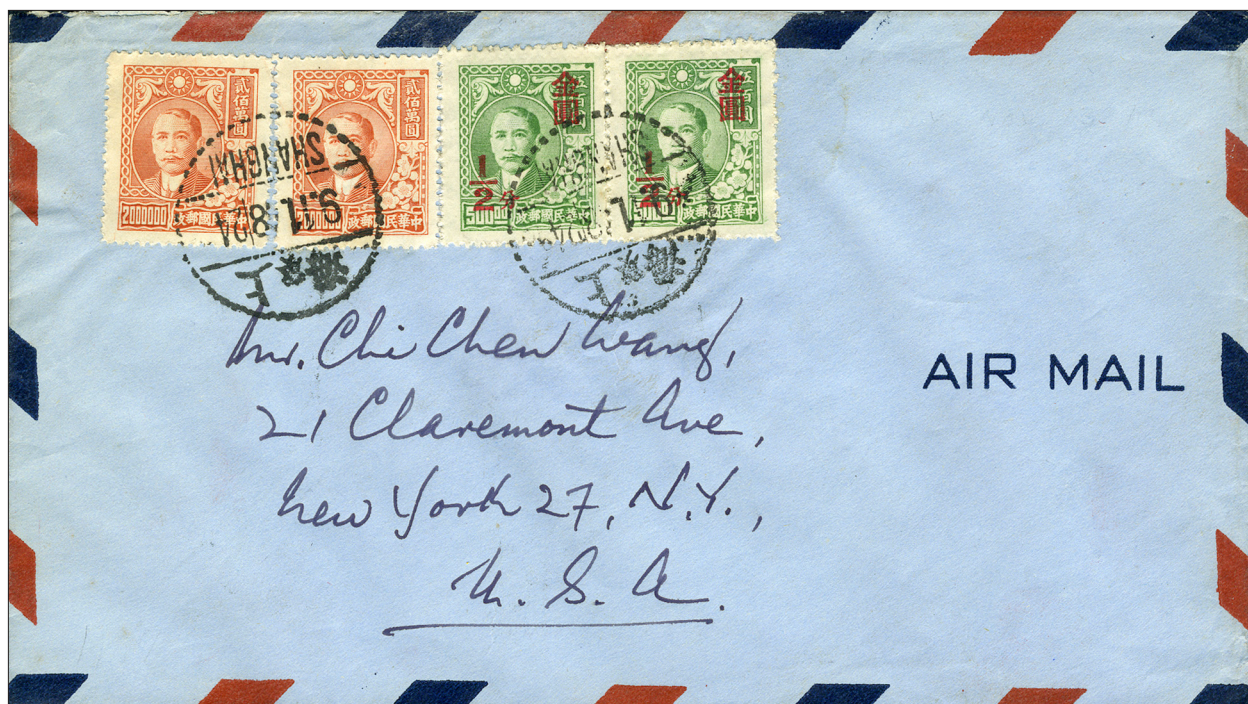 貳佰萬圓
2000000
中華民國郵政
貳佰萬圓
中華民國郵政
金圓
1/2 分
中華民國郵政
金圓
1/2 分
中華民國郵政
SHANGHAI
上海
SHANGHAI
上海
Mr. Chi Chen Wang,
21 Claremont Ave,
New York 27, N.Y.,
U. S. A.
AIR MAIL